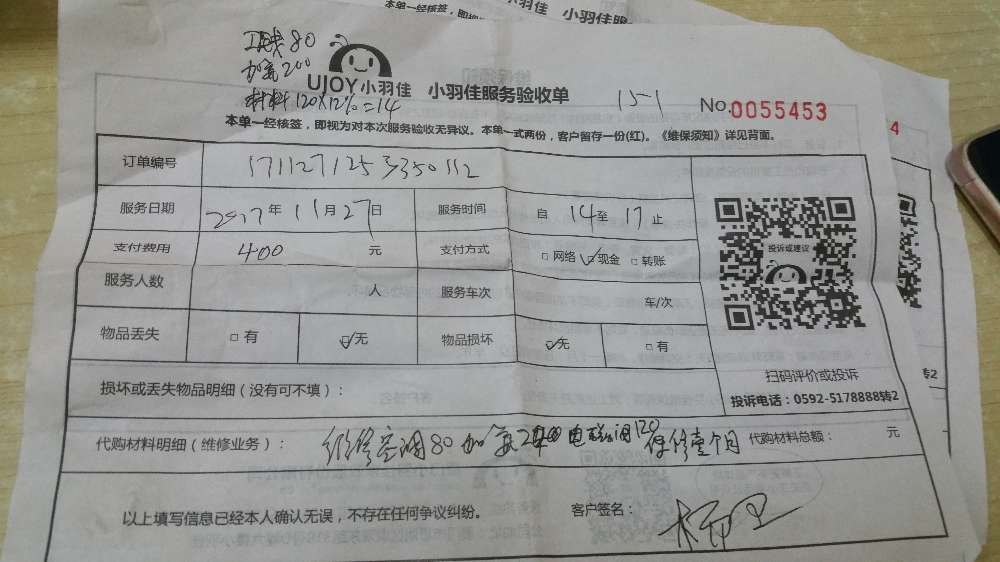 80
加氟200
材料120×12%=14
UJOY小羽佳 小羽佳服务验收单
15-1
No.0055453
本单一经核签，即视为对本次服务验收无异议。本单一式两份，客户留存一份(红)。《维保须知》详见背面。
订单编号 1711271253350112
服务日期 2017年11月27日 服务时间 自14至17止
支付费用 400元 支付方式 □网络 ☑现金 □转账
服务人数 人 服务车次 车/次
物品丢失 □有 ☑无 物品损坏 ☑无 □有
投诉或建议
扫码评价或投诉
投诉电话：0592-5178888转2
损坏或丢失物品明细（没有可不填）：
代购材料明细（维修业务）： 维修空调80 加氟200 电磁阀120 保修壹个月 代购材料总额： 元
以上填写信息已经本人确认无误，不存在任何争议纠纷。 客户签名：
本单一经核签，即视
小羽佳服
4
转2